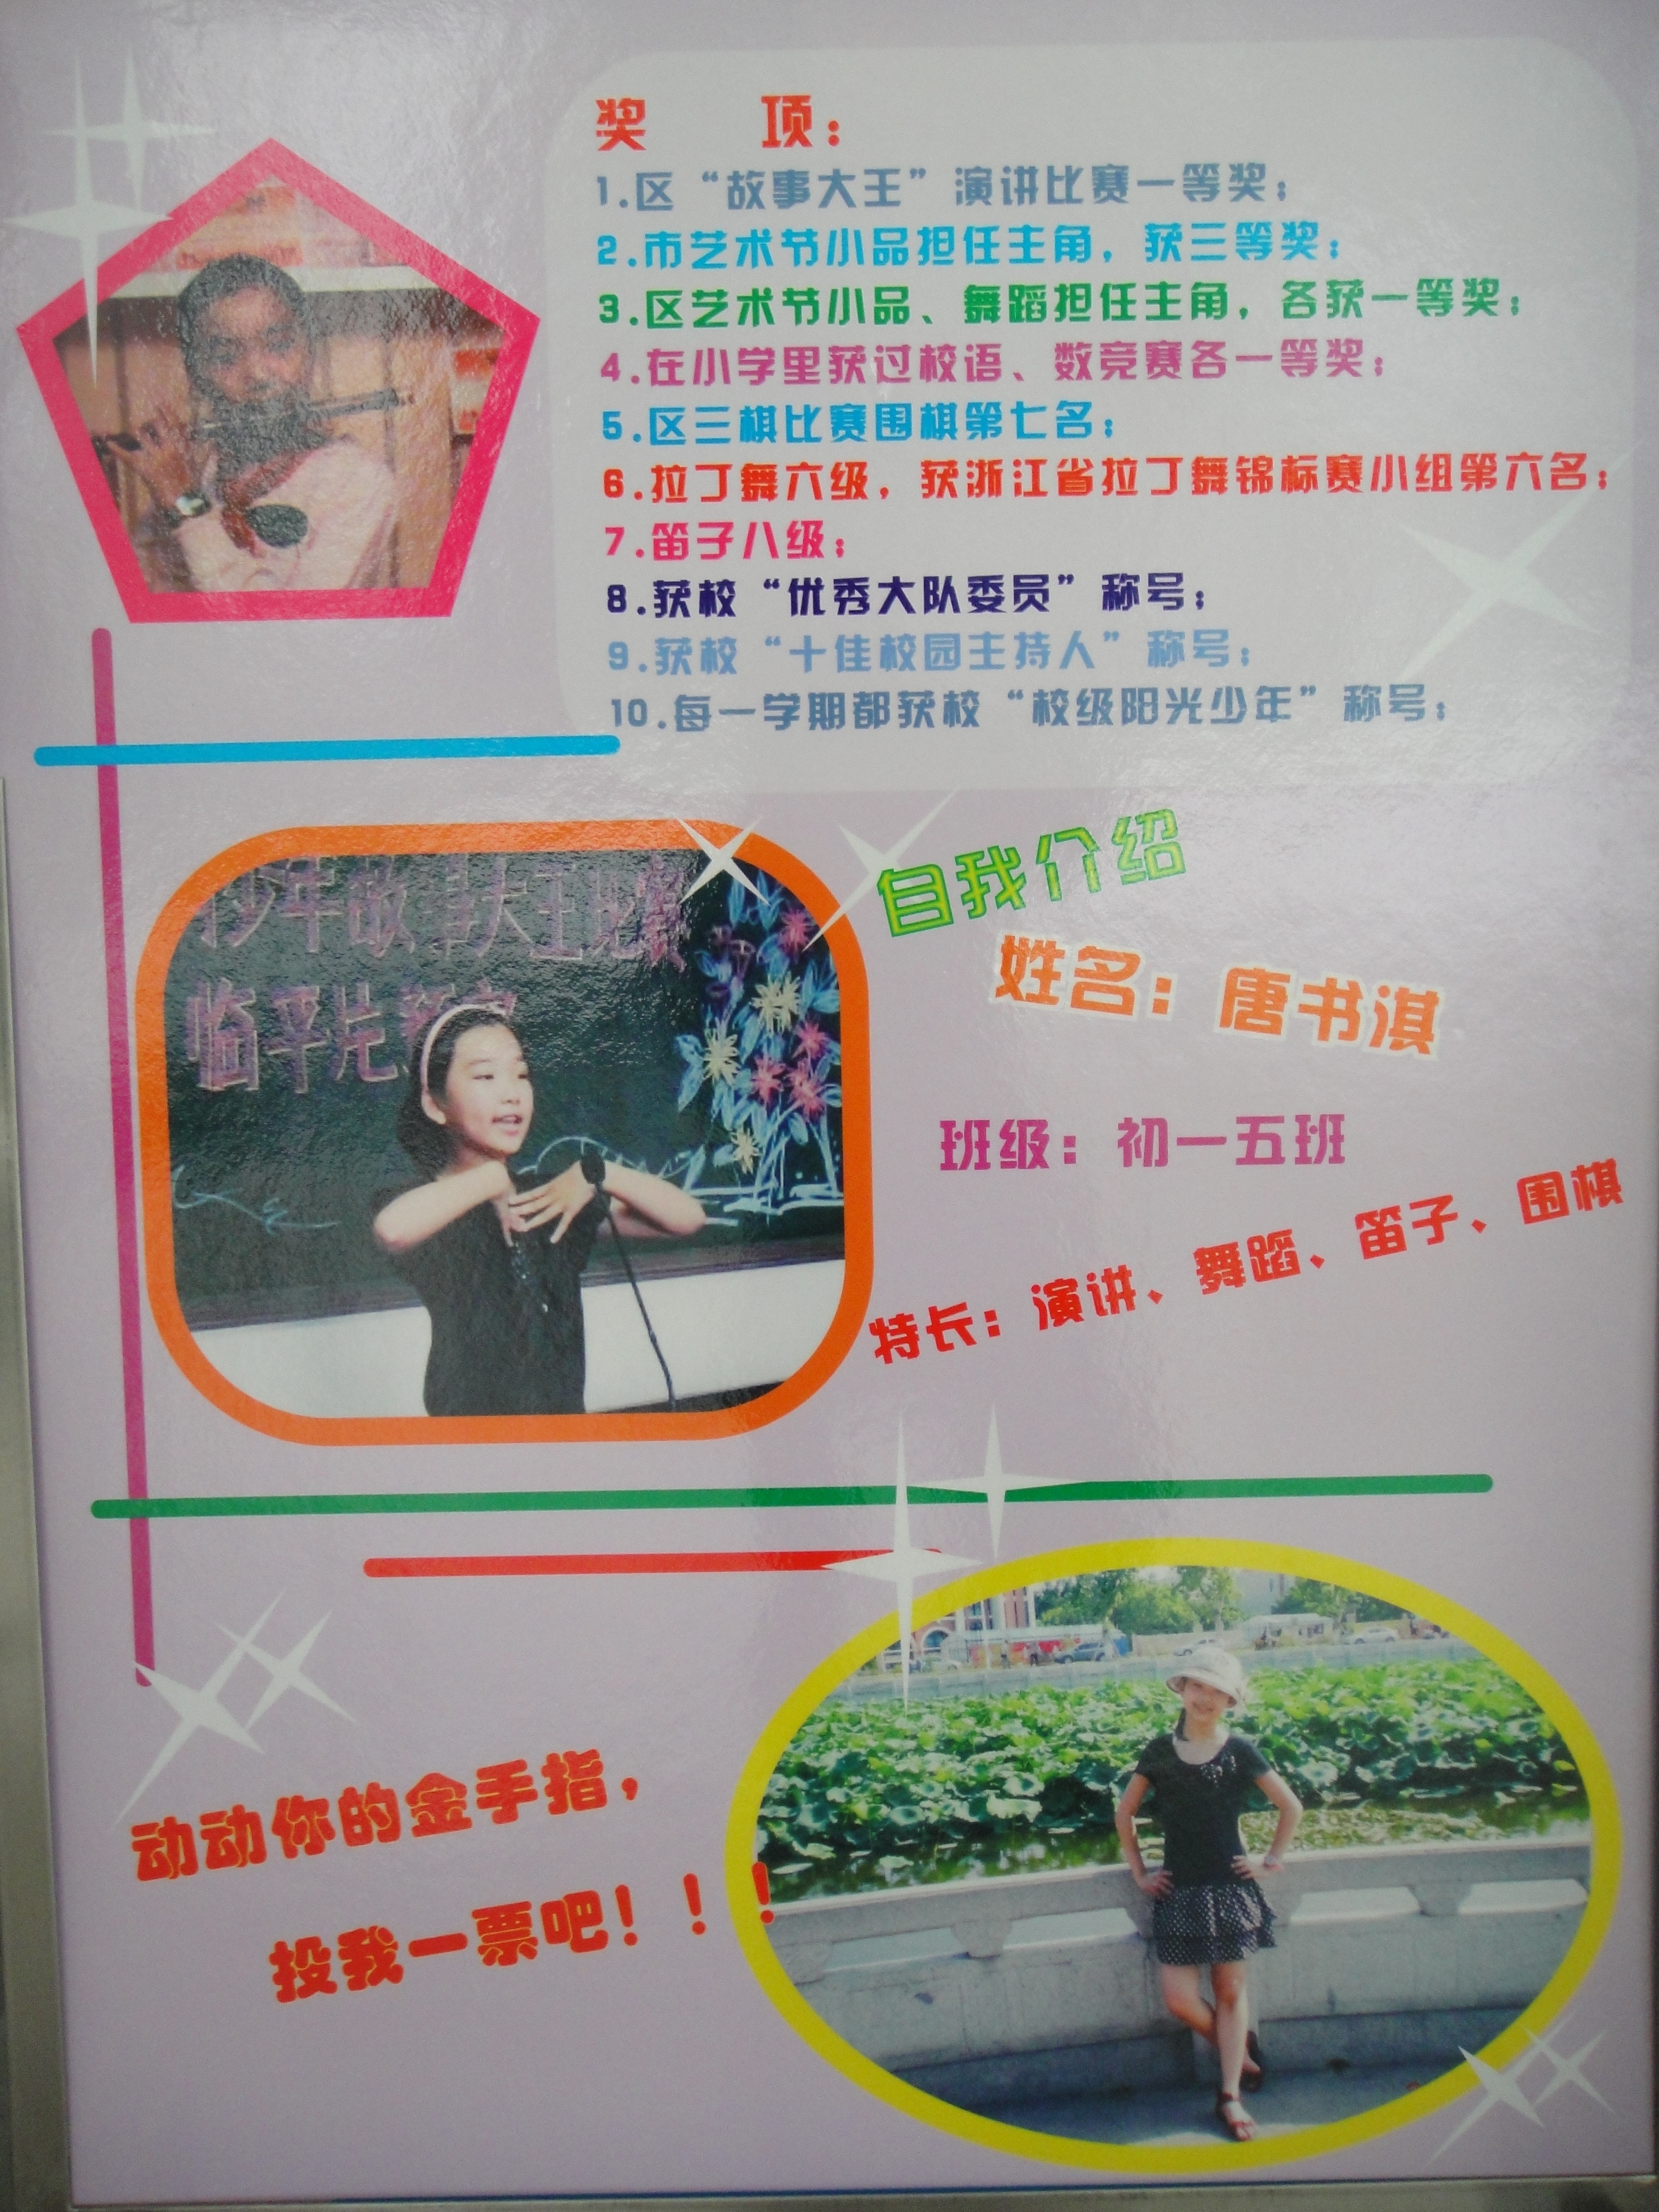 奖 项：
1.区“故事大王”演讲比赛一等奖；
2.市艺术节小品担任主角，获三等奖；
3.区艺术节小品、舞蹈担任主角，各获一等奖；
4.在小学里获过校语、数竞赛各一等奖；
5.区三棋比赛围棋第七名；
6.拉丁舞六级，获浙江省拉丁舞锦标赛小组第六名；
7.笛子八级；
8.获校“优秀大队委员”称号；
9.获校“十佳校园主持人”称号；
10.每一学期都获校“校级阳光少年”称号；
少年故事大王比赛
临平片
自我介绍
姓名：唐书淇
班级：初一五班
特长：演讲、舞蹈、笛子、围棋
动动你的金手指，
投我一票吧！！！